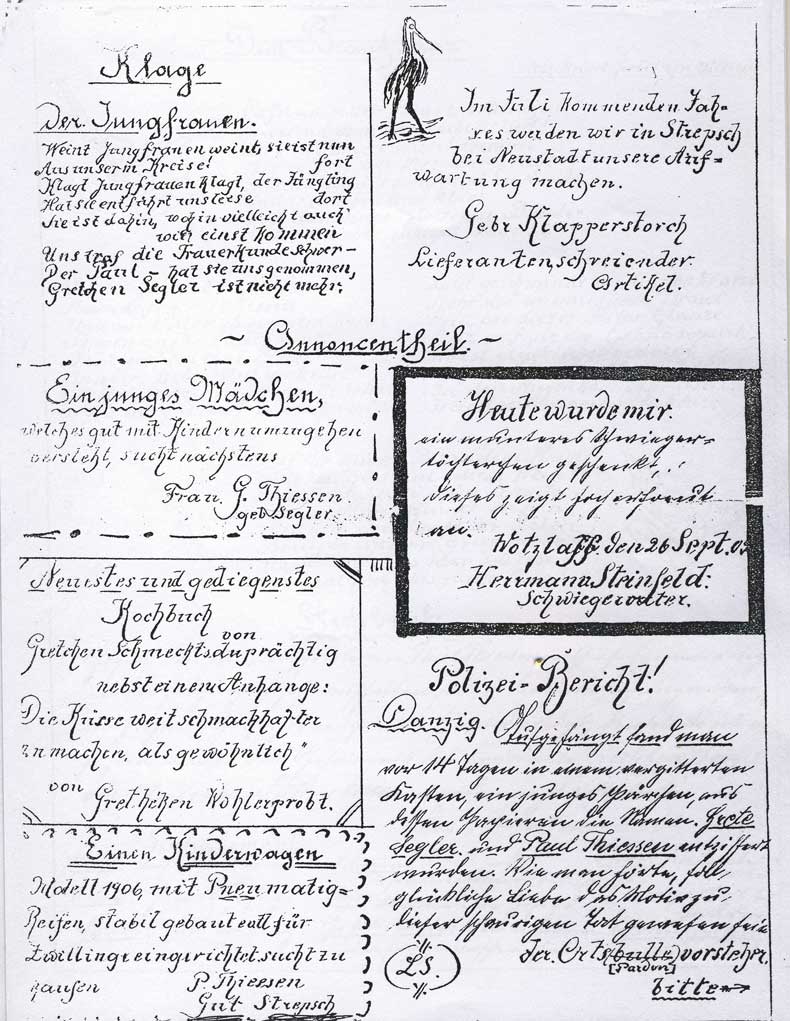 Klage
der Jungfrauen.
Weint Jungfrauen weint, sie ist nun
Aus unserm Kreise! fort
Klagt Jungfrauen klagt, der Jüngling
Hat sie entführt uns leise dort
Sie ist dahin, wohin vielleicht auch
wir einst kommen
Uns traf die Trauerkunde schwer –
Der Paul – hat sie uns genommen,
Gretchen Segler ist nicht mehr.
Im Juli kommenden Jah-
res werden wir in Strepsch
bei Neustadt unsere Auf-
wartung machen.
Gebr Klapperstorch
Lieferanten, schreiender
Artikel.
~ Annoncentheil. ~
Ein junges Mädchen,
welches gut mit Kindern umzugehen
versteht, sucht nächstens
Frau G. Thiessen
geb Segler
Heute wurde mir
ein munteres Schwieger-
töchterchen geschenkt,
dieses zeigt hocherfreut
an.
Wotzlaff, den 26 Sept. 05
Herrmann Steinfeld:
Schwiegervater.
Neuestes und gediegenstes
Kochbuch
von
Gretchen Schmecktsduprächtig
nebst einem Anhange:
Die Küsse weit schmackhafter
zu machen, als gewöhnlich"
von Grethchen Wohlerprobt.
Einen Kinderwagen
Modell 1906, mit Pneumatig=
Reifen, stabil gebaut und für
Zwillinge eingerichtet sucht zu
kaufen P. Thiessen
Gut Strepsch
Polizei-Bericht!
Danzig. Aufgehängt fand man
vor 14 Tagen in einem vergitterten
Kasten, ein junges Pärchen, aus
dessen Papieren die Namen. Grete
Segler. und Paul Thiessen entziffert
wurden. Wie man hörte, soll
glückliche Liebe das Motiv zu
dieser schaurigen Tat gewesen sein
der. Ortsbulle) vorsteher.
[Pardon]
L.S.
bitte